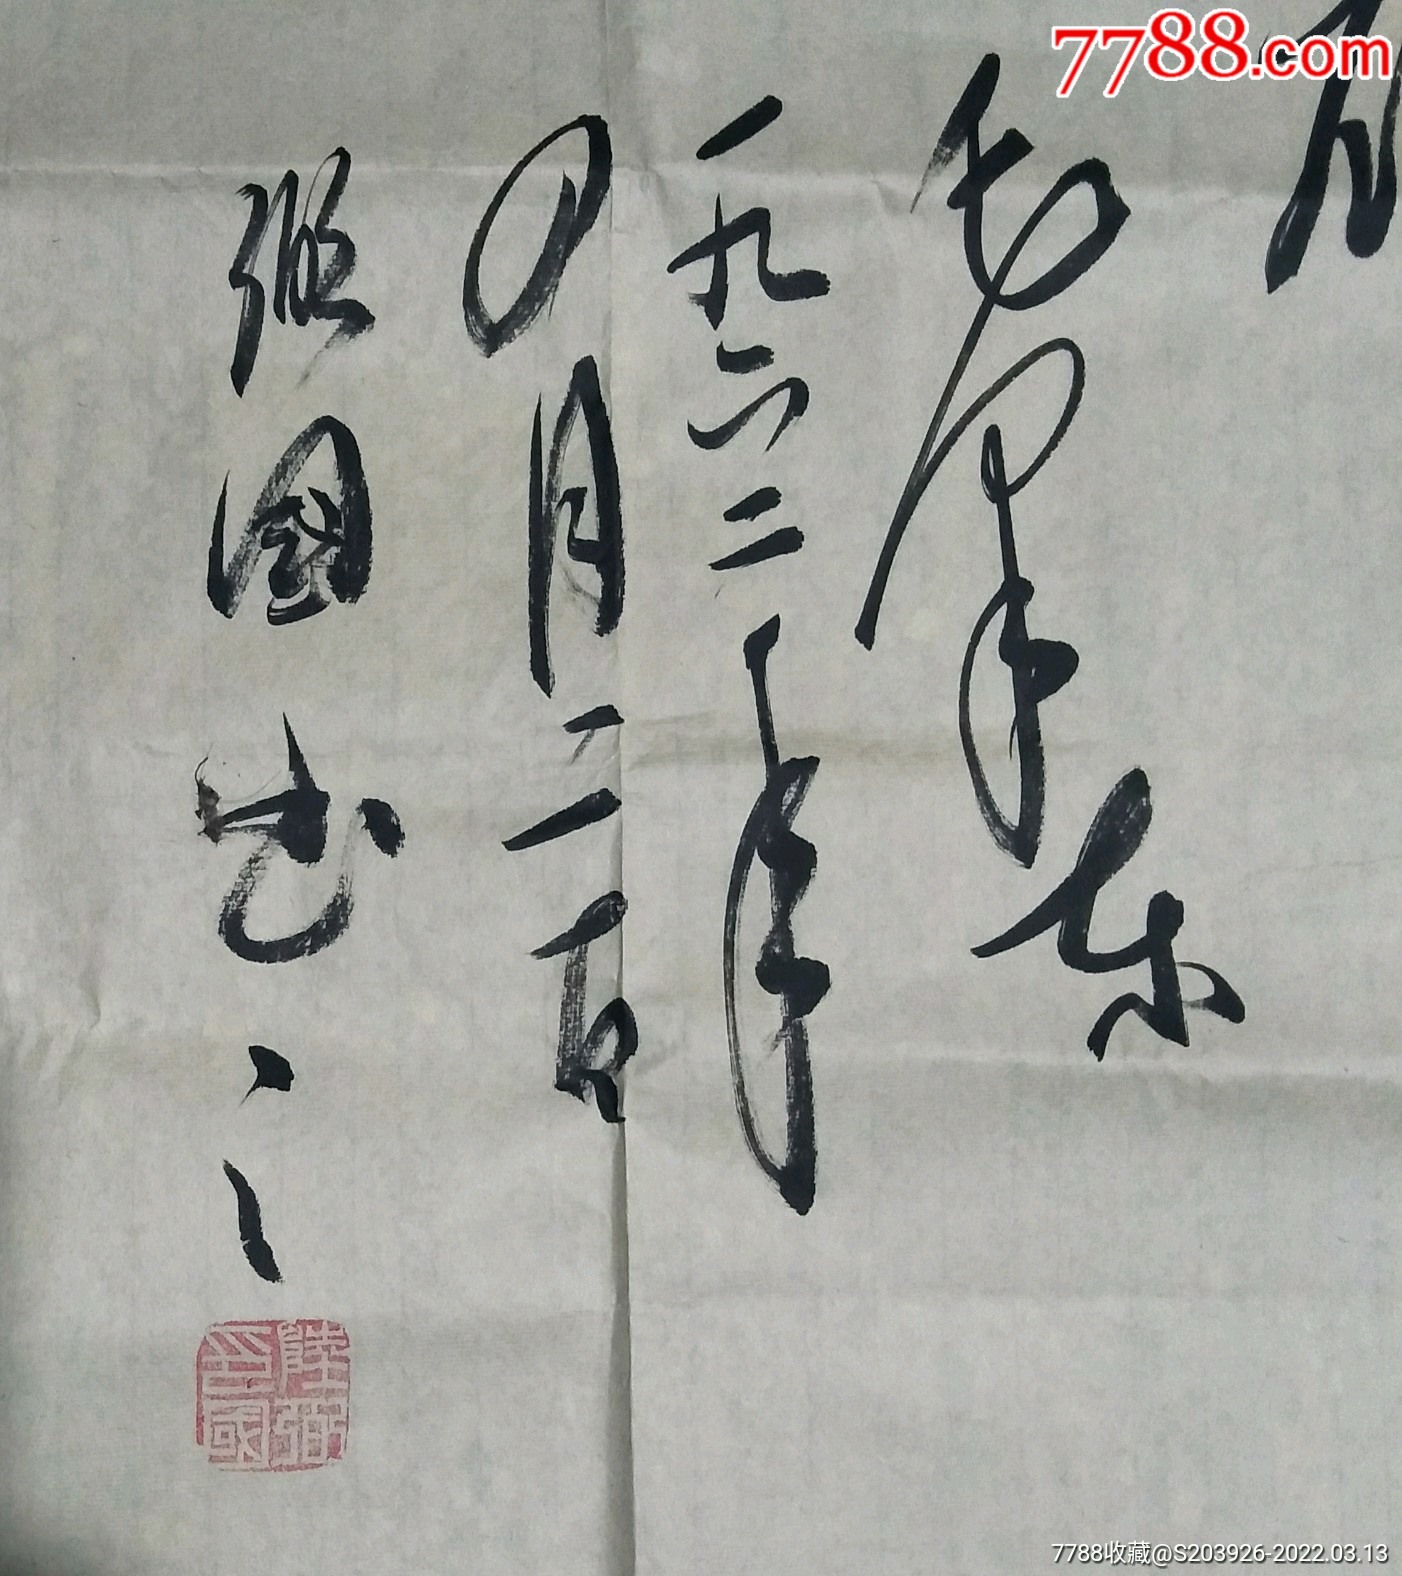 7788.com
毛泽东
一九六二年
四月二十日
弼国书
陆弼国印
7788收藏@S203926-2022.03.13